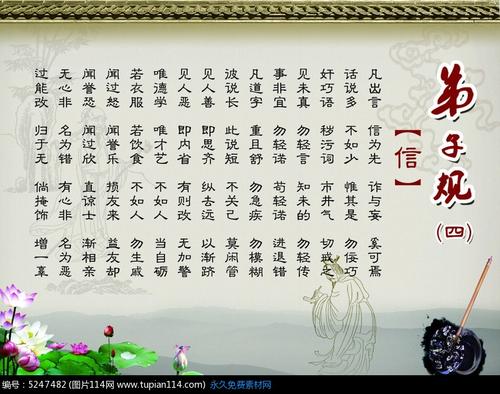 弟子规(四)
【信】
凡出言 信为先 诈与妄 奚可焉
话说多 不如少 惟其是 勿佞巧
奸巧语 秽污词 市井气 切戒之
见未真 勿轻言 知未的 勿轻传
事非宜 勿轻诺 苟轻诺 进退错
凡道字 重且舒 勿急疾 勿模糊
彼说长 此说短 不关己 莫闲管
见人善 即思齐 纵去远 以渐跻
见人恶 即内省 有则改 无加警
唯德学 唯才艺 不如人 当自砺
若衣服 若饮食 不如人 勿生戚
闻过怒 闻誉乐 损友来 益友却
闻誉恐 闻过欣 直谅士 渐相亲
无心非 名为错 有心非 名为恶
过能改 归于无 倘掩饰 增一辜
编号：5247482 (图片114网 www.tupian114.com) 永久免费素材网